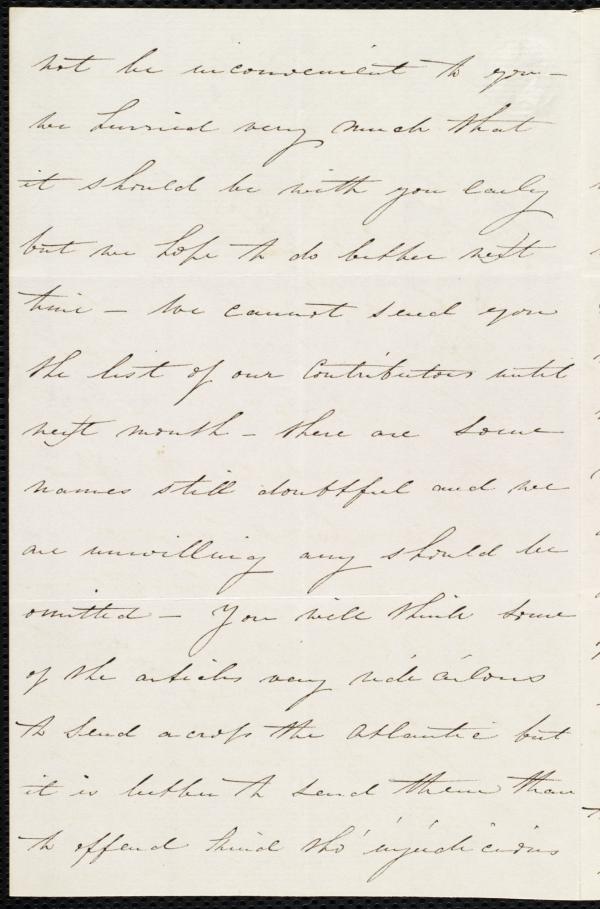 not be inconvenient to you –
we hurried very much that
it should be with you early
but we hope to do better next
time – We cannot send you
the list of our Contributors until
next month – there are some
names still doubtful and we
are unwilling any should be
omitted – You will think some
of the articles very ridiculous
to send across the Atlantic but
it is better to send them than
to offend kind tho' injudicious